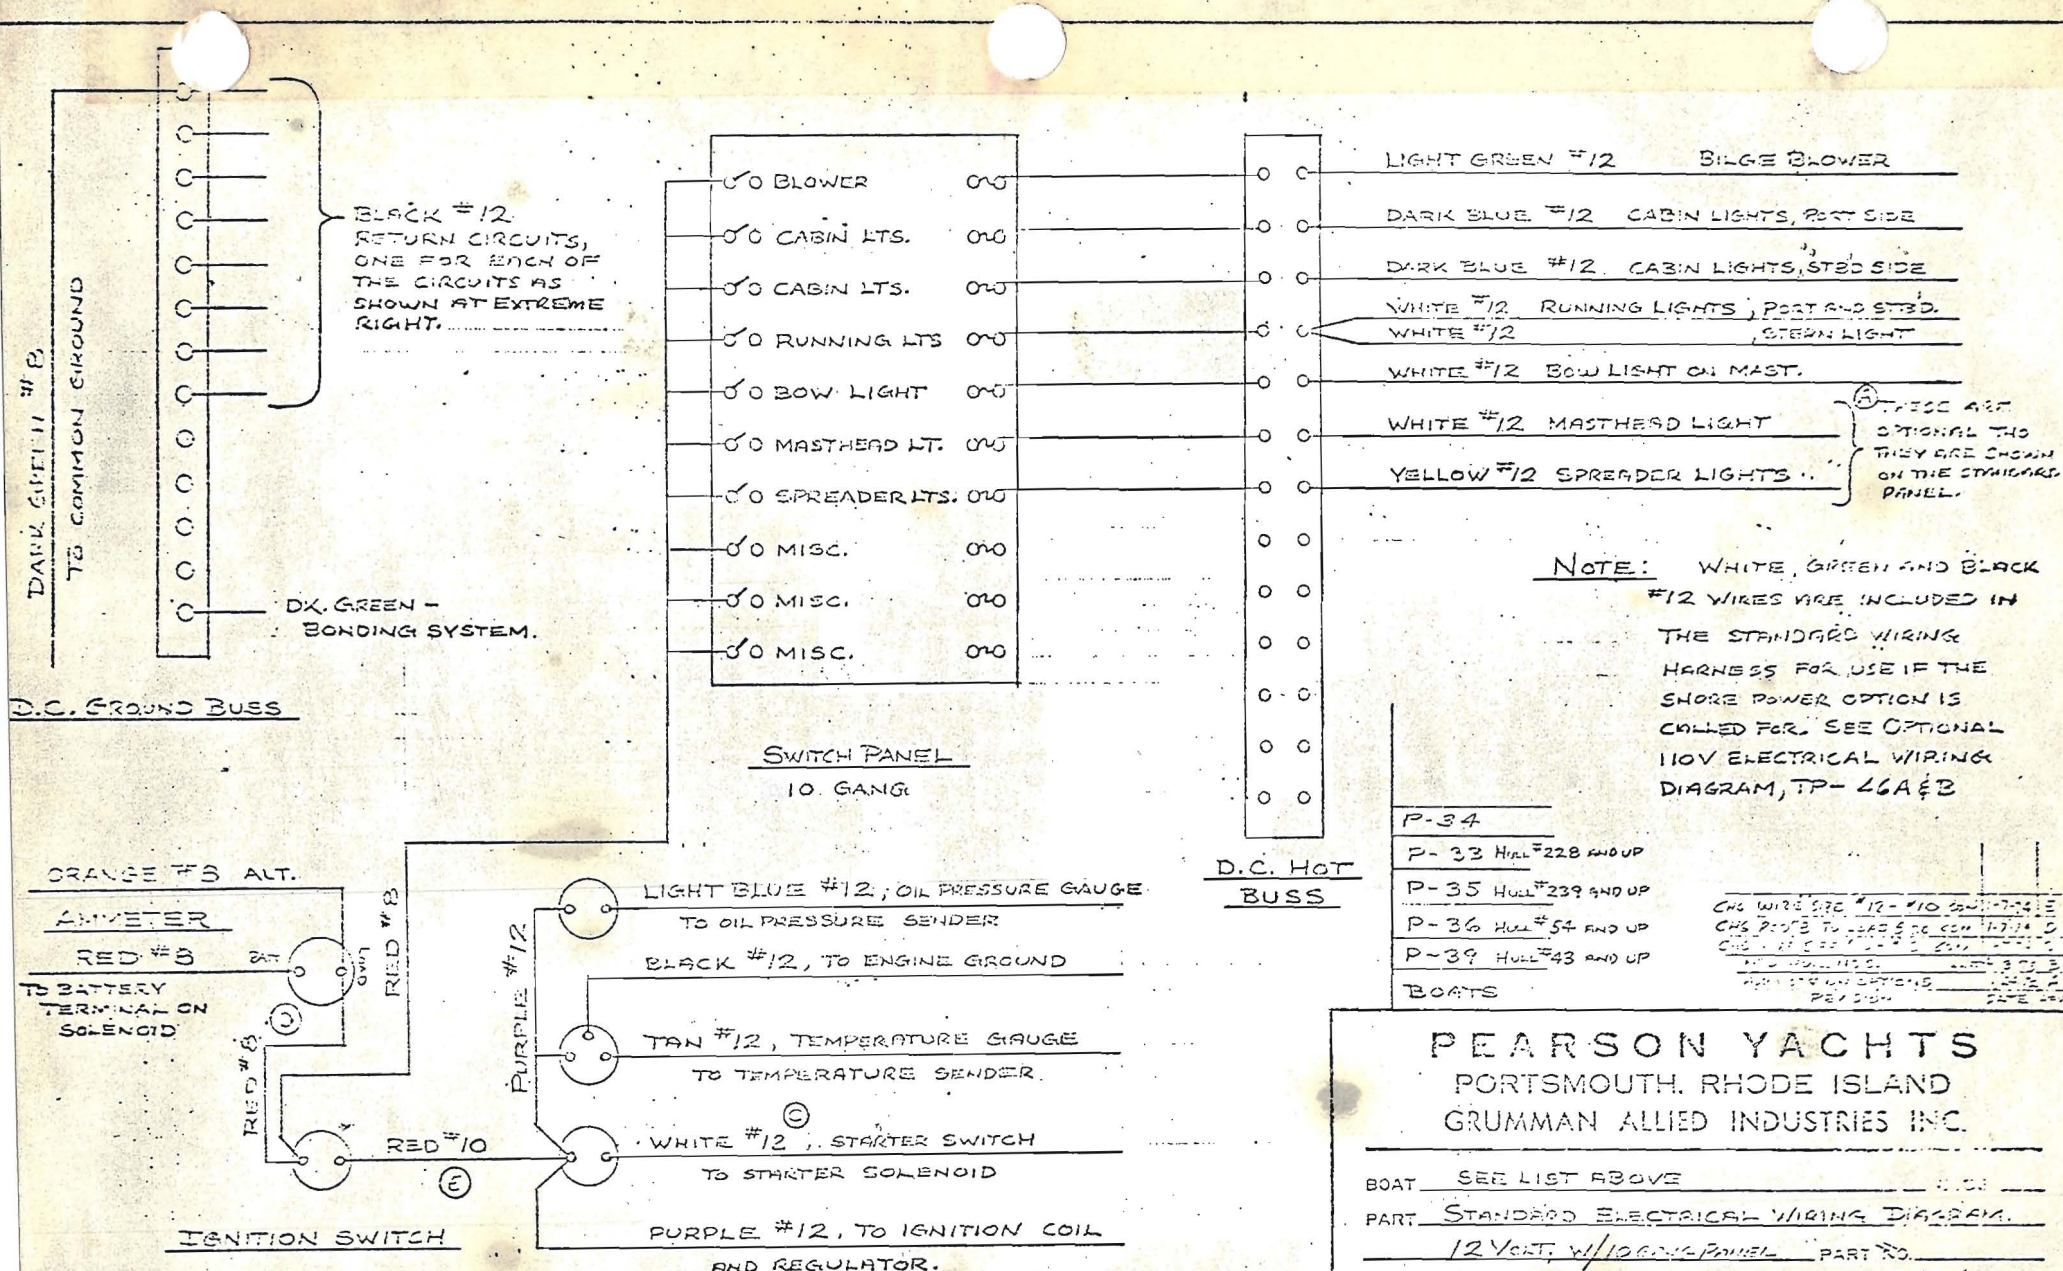 DARK GREEN #8
TO COMMON GROUND
BLACK #12
RETURN CIRCUITS,
ONE FOR EACH OF
THE CIRCUITS AS
SHOWN AT EXTREME
RIGHT.
DK. GREEN -
BONDING SYSTEM.
D.C. GROUND BUSS
BLOWER
CABIN LTS.
CABIN LTS.
RUNNING LTS
BOW LIGHT
MASTHEAD LT.
SPREADER LTS.
MISC.
MISC.
MISC.
SWITCH PANEL
10 GANG
LIGHT GREEN #12 BILGE BLOWER
DARK BLUE #12 CABIN LIGHTS, PORT SIDE
DARK BLUE #12 CABIN LIGHTS, STBD SIDE
WHITE #12 RUNNING LIGHTS, PORT AND STB'D.
WHITE #12 , STERN LIGHT
WHITE #12 BOW LIGHT ON MAST.
WHITE #12 MASTHEAD LIGHT
YELLOW #12 SPREADER LIGHTS
A
THESE ARE
OPTIONAL THO
THEY ARE SHOWN
ON THE STANDARD
PANEL.
D.C. HOT
BUSS
NOTE: WHITE, GREEN AND BLACK
#12 WIRES ARE INCLUDED IN
THE STANDARD WIRING
HARNESS FOR USE IF THE
SHORE POWER OPTION IS
CALLED FOR. SEE OPTIONAL
110V ELECTRICAL WIRING
DIAGRAM, TP-46A & B
P-34
P-33 HULL #228 AND UP
P-35 HULL #239 AND UP
P-36 HULL #54 AND UP
P-39 HULL #43 AND UP
BOATS
CHG WIRE SIZE #12-#10
REVISION DATE
ORANGE #8 ALT.
AMMETER
RED #8
BAT
LOAD
TO BATTERY
TERMINAL ON
SOLENOID
D
RED #8
RED #8
RED #10
E
IGNITION SWITCH
PURPLE #12
LIGHT BLUE #12, OIL PRESSURE GAUGE
TO OIL PRESSURE SENDER
BLACK #12, TO ENGINE GROUND
TAN #12, TEMPERATURE GAUGE
TO TEMPERATURE SENDER
C
WHITE #12, STARTER SWITCH
TO STARTER SOLENOID
PURPLE #12, TO IGNITION COIL
AND REGULATOR.
PEARSON YACHTS
PORTSMOUTH. RHODE ISLAND
GRUMMAN ALLIED INDUSTRIES INC.
BOAT SEE LIST ABOVE
PART STANDARD ELECTRICAL WIRING DIAGRAM.
12 VOLT, W/10 GANG PANEL PART NO.